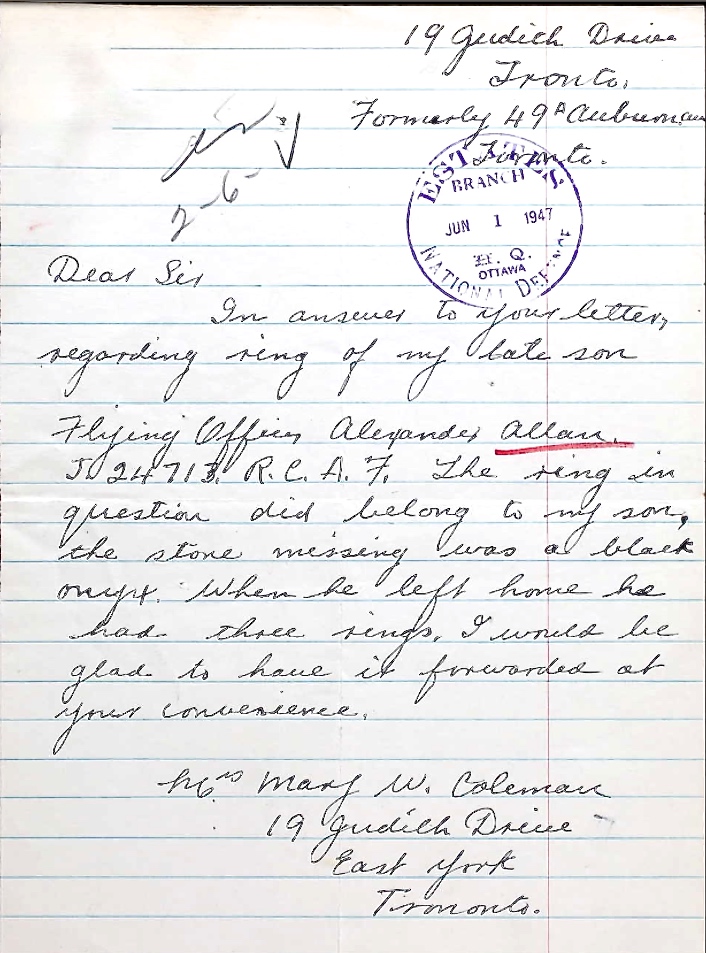 19 Judith Drive
Tronto.
Formerly 49A Auburn Ave
Toronto.
2-6-
ESTATES
BRANCH
JUN 1 1947
H. Q.
OTTAWA
NATIONAL DEFENCE
Dear Sir
In answer to your letter,
regarding ring of my late son
Flying Officer Alexander Allan.
J. 24713. R.C.A.F. The ring in
question did belong to my son,
the stone missing was a black
onyx. When he left home he
had three rings. I would be
glad to have it forwarded at
your convenience.
Mrs Mary W. Coleman
19 Judith Drive
East York
Tronto.